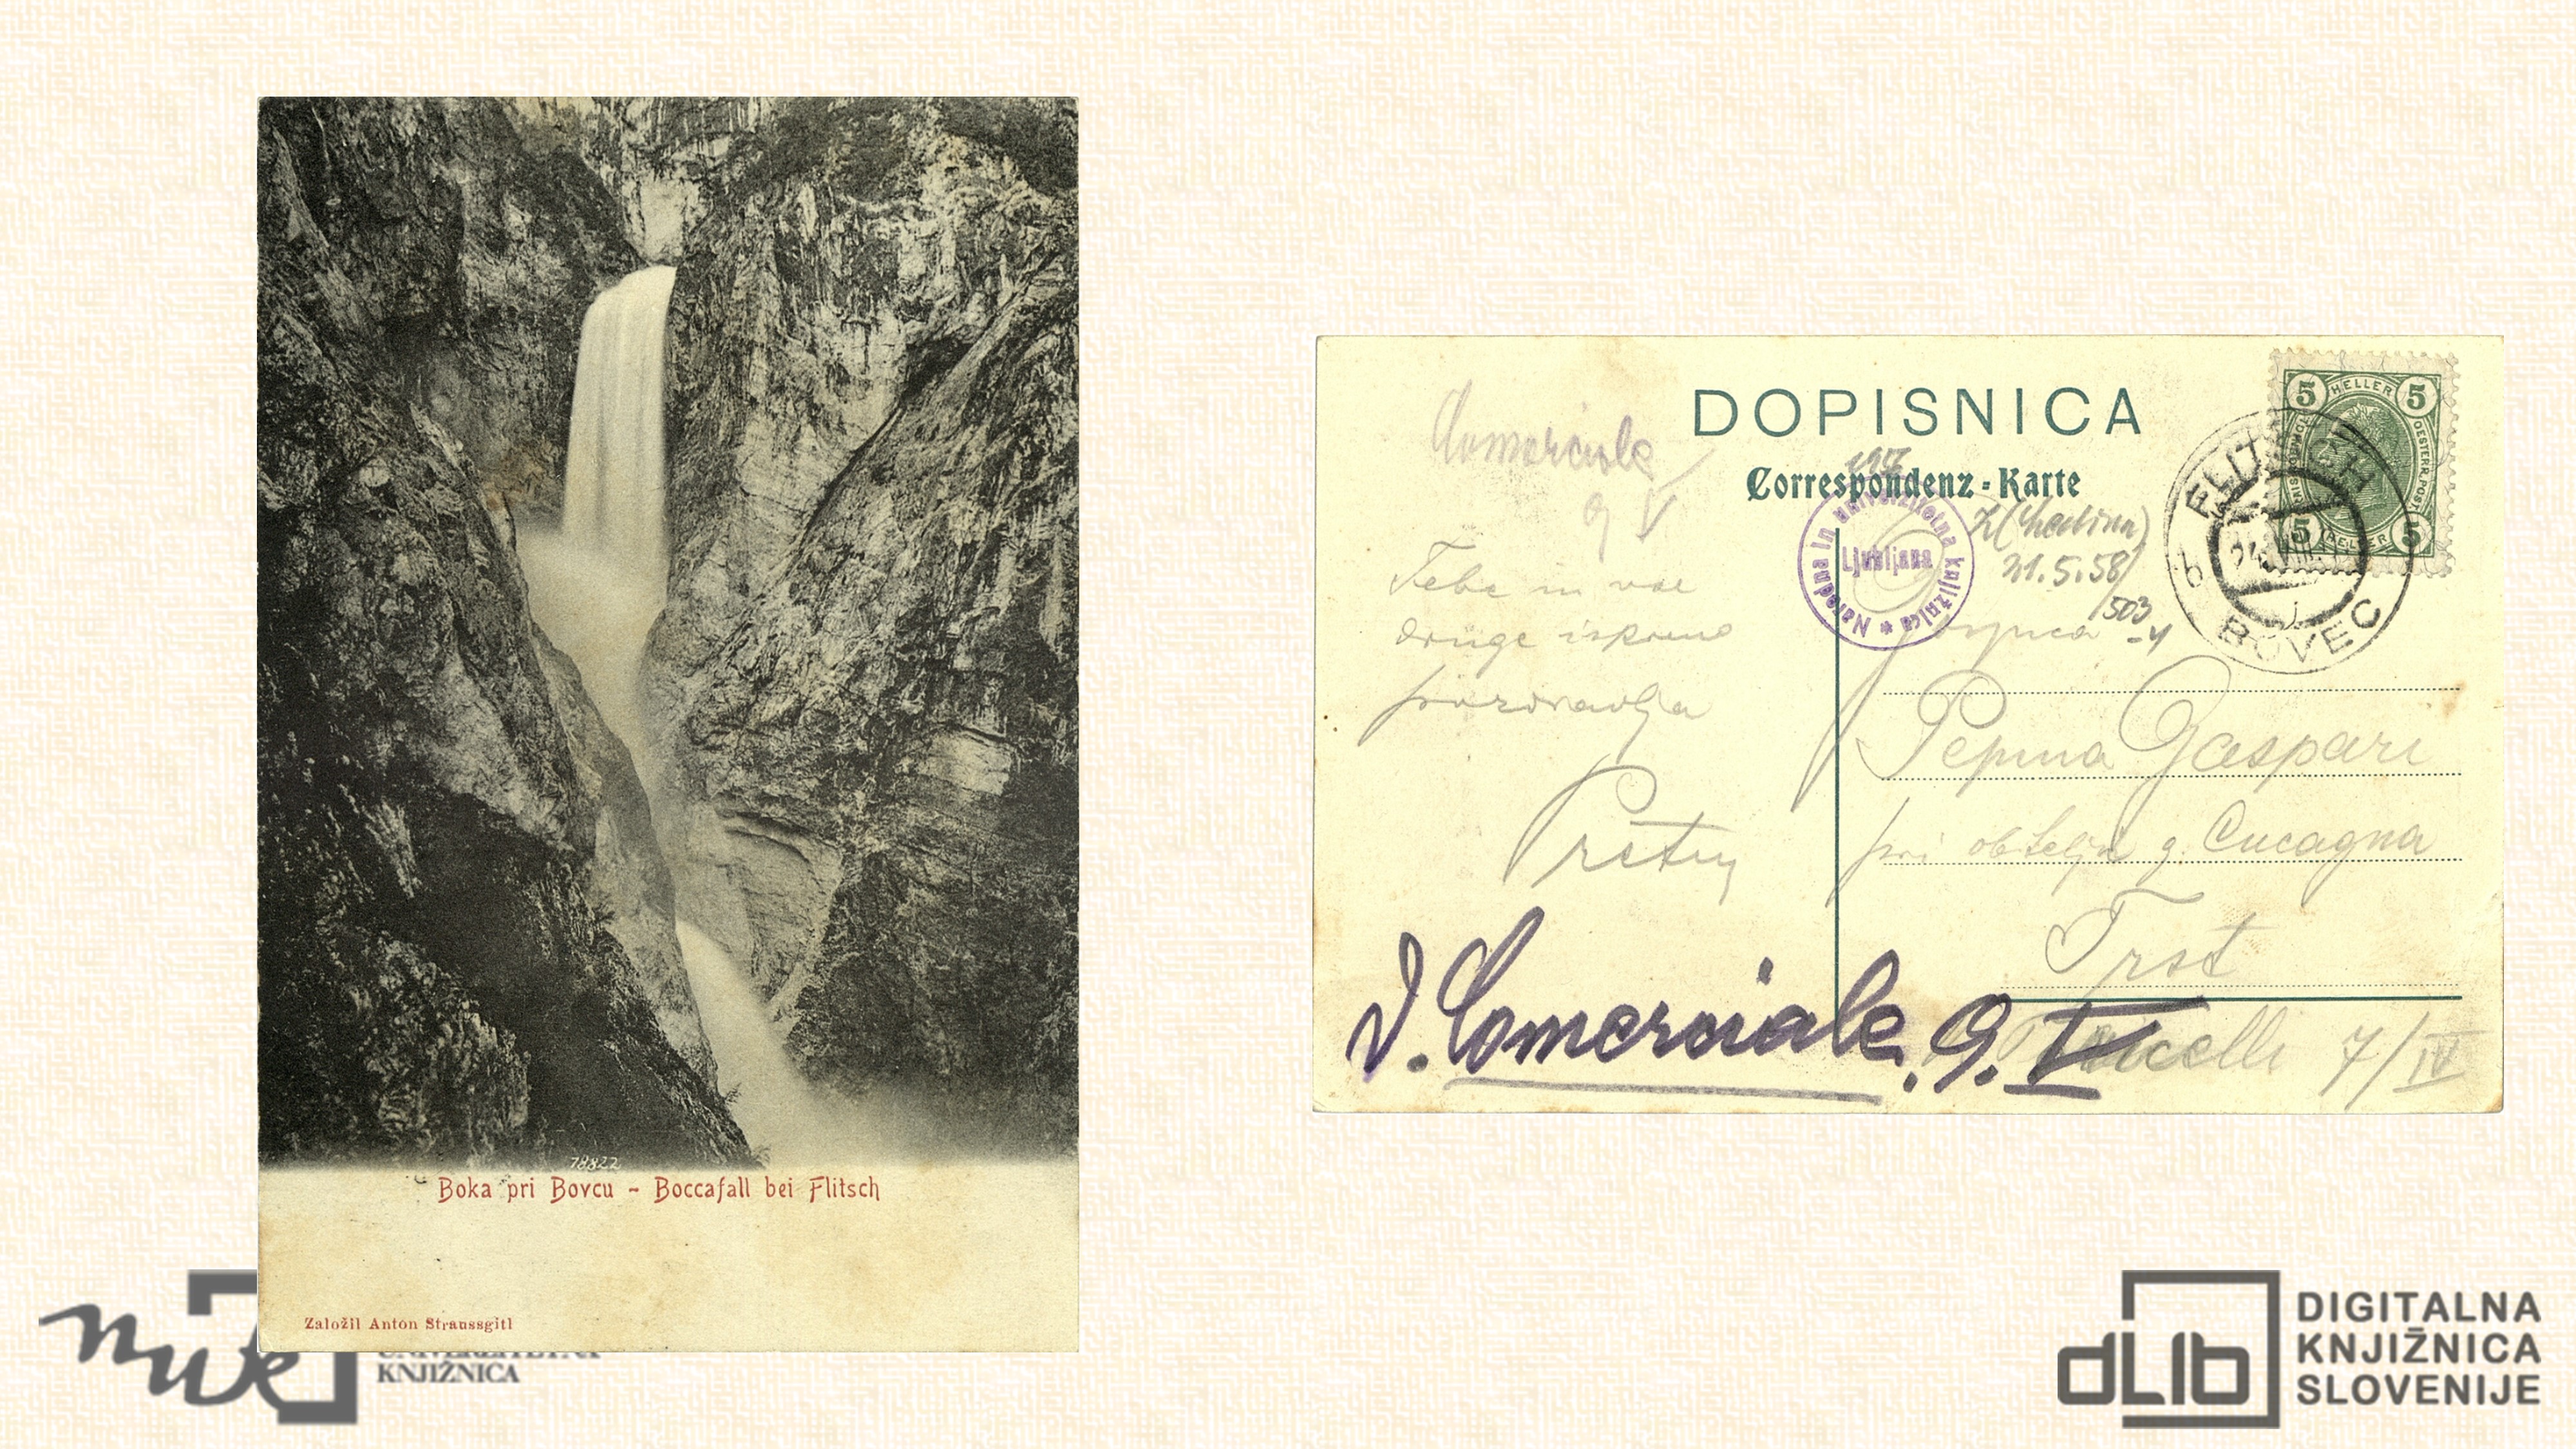 78822
Boka pri Bovcu - Boccafall bei Flitsch
Založil Anton Straussgitl
KNJIŽNICA
DOPISNICA
Correspondenz-Karte
Comerciale
9 V
Narodna in univerzitetna knjižnica *
Ljubljana
21.5.58
503
5 HELLER 5
5 HELLER 5
FLITSCH
b
BOVEC
Tebe in vse
druge iskreno
pozdravlja
Pepina Gaspari
pri obitelji g. Cucagna
Trst
V. Comerciale, 9. V
7/IV
nuk
dLib
DIGITALNA
KNJIŽNICA
SLOVENIJE